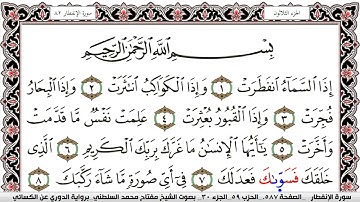 الجزء الثلاثون
سورة الإنفطار ٨٢
بِسْمِ اللَّهِ الرَّحْمَٰنِ الرَّحِيمِ
إِذَا السَّمَاءُ انفَطَرَتْ ١ وَإِذَا الْكَوَاكِبُ انتَثَرَتْ ٢ وَإِذَا الْبِحَارُ
فُجِّرَتْ ٣ وَإِذَا الْقُبُورُ بُعْثِرَتْ ٤ عَلِمَتْ نَفْسٌ مَّا قَدَّمَتْ
وَأَخَّرَتْ ٥ يَٰأَيُّهَا الْإِنسَٰنُ مَا غَرَّكَ بِرَبِّكَ الْكَرِيمِ ٦ الَّذِي
خَلَقَكَ فَسَوَّىٰكَ فَعَدَّلَكَ ٧ فِي أَيِّ صُورَةٍ مَّا شَاءَ رَكَّبَكَ ٨
سورة الإنفطار الصفحة ٥٨٧ الحزب ٥٩ الجزء ٣٠ بصوت الشيخ مفتاح محمد السلطني برواية الدوري عن الكسائي